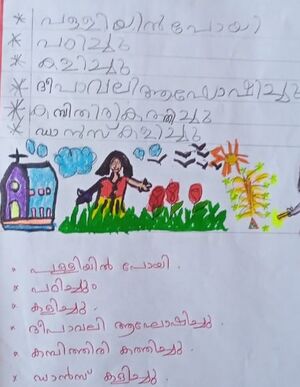 * പള്ളിയിൽ പോയി
* പഠിച്ചു
* കളിച്ചു
* ദീപാവലി ആഘോഷിച്ചു
* കമ്പിത്തിരി കത്തിച്ചു
* ഡാൻസ് കളിച്ചു
* പള്ളിയിൽ പോയി.
* പഠിച്ചും
* കളിച്ചു.
* ദീപാവലി ആഘോഷിച്ചു.
* കമ്പിത്തിരി കത്തിച്ചു.
* ഡാൻസ് കളിച്ചു.